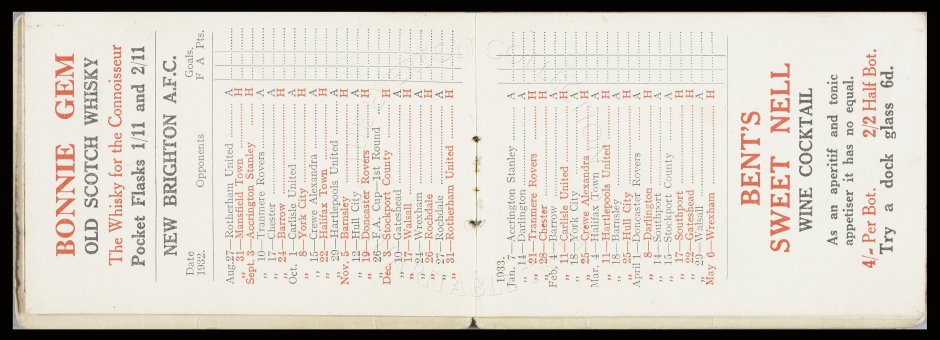 BONNIE GEM
OLD SCOTCH WHISKY
The Whisky for the Connoisseur
Pocket Flasks 1/11 and 2/11
NEW BRIGHTON A.F.C.
Date Goals.
1932. Opponents F A Pts.
Aug. 27—Rotherham United A
„ 31—Mansfield Town H
Sept. 3—Accrington Stanley H
„ 10—Tranmere Rovers A
„ 17—Chester A
„ 24—Barrow H
Oct. 1—Carlisle United A
„ 8—York City H
„ 15—Crewe Alexandra A
„ 22—Halifax Town H
„ 29—Hartlepools United A
Nov. 5—Barnsley H
„ 12—Hull City A
„ 19—Doncaster Rovers H
„ 26—F.A. Cup—1st Round
Dec. 3—Stockport County H
„ 10—Gateshead A
„ 17—Walsall H
„ 24—Wrexham A
„ 26—Rochdale H
„ 27—Rochdale A
„ 31—Rotherham United H
1933.
Jan. 7—Accrington Stanley A
„ 14—Darlington A
„ 21—Tranmere Rovers H
„ 28—Chester H
Feb. 4—Barrow A
„ 11—Carlisle United H
„ 18—York City A
„ 25—Crewe Alexandra H
Mar. 4—Halifax Town A
„ 11—Hartlepools United H
„ 18—Barnsley A
„ 25—Hull City H
April 1—Doncaster Rovers A
„ 8—Darlington H
„ 14—Southport A
„ 15—Stockport County A
„ 17—Southport H
„ 22—Gateshead H
„ 29—Walsall A
May 6—Wrexham H
BENT'S
SWEET NELL
WINE COCKTAIL
As an aperitif and tonic
appetiser it has no equal.
4/- Per Bot. 2/2 Half Bot.
Try a dock glass 6d.